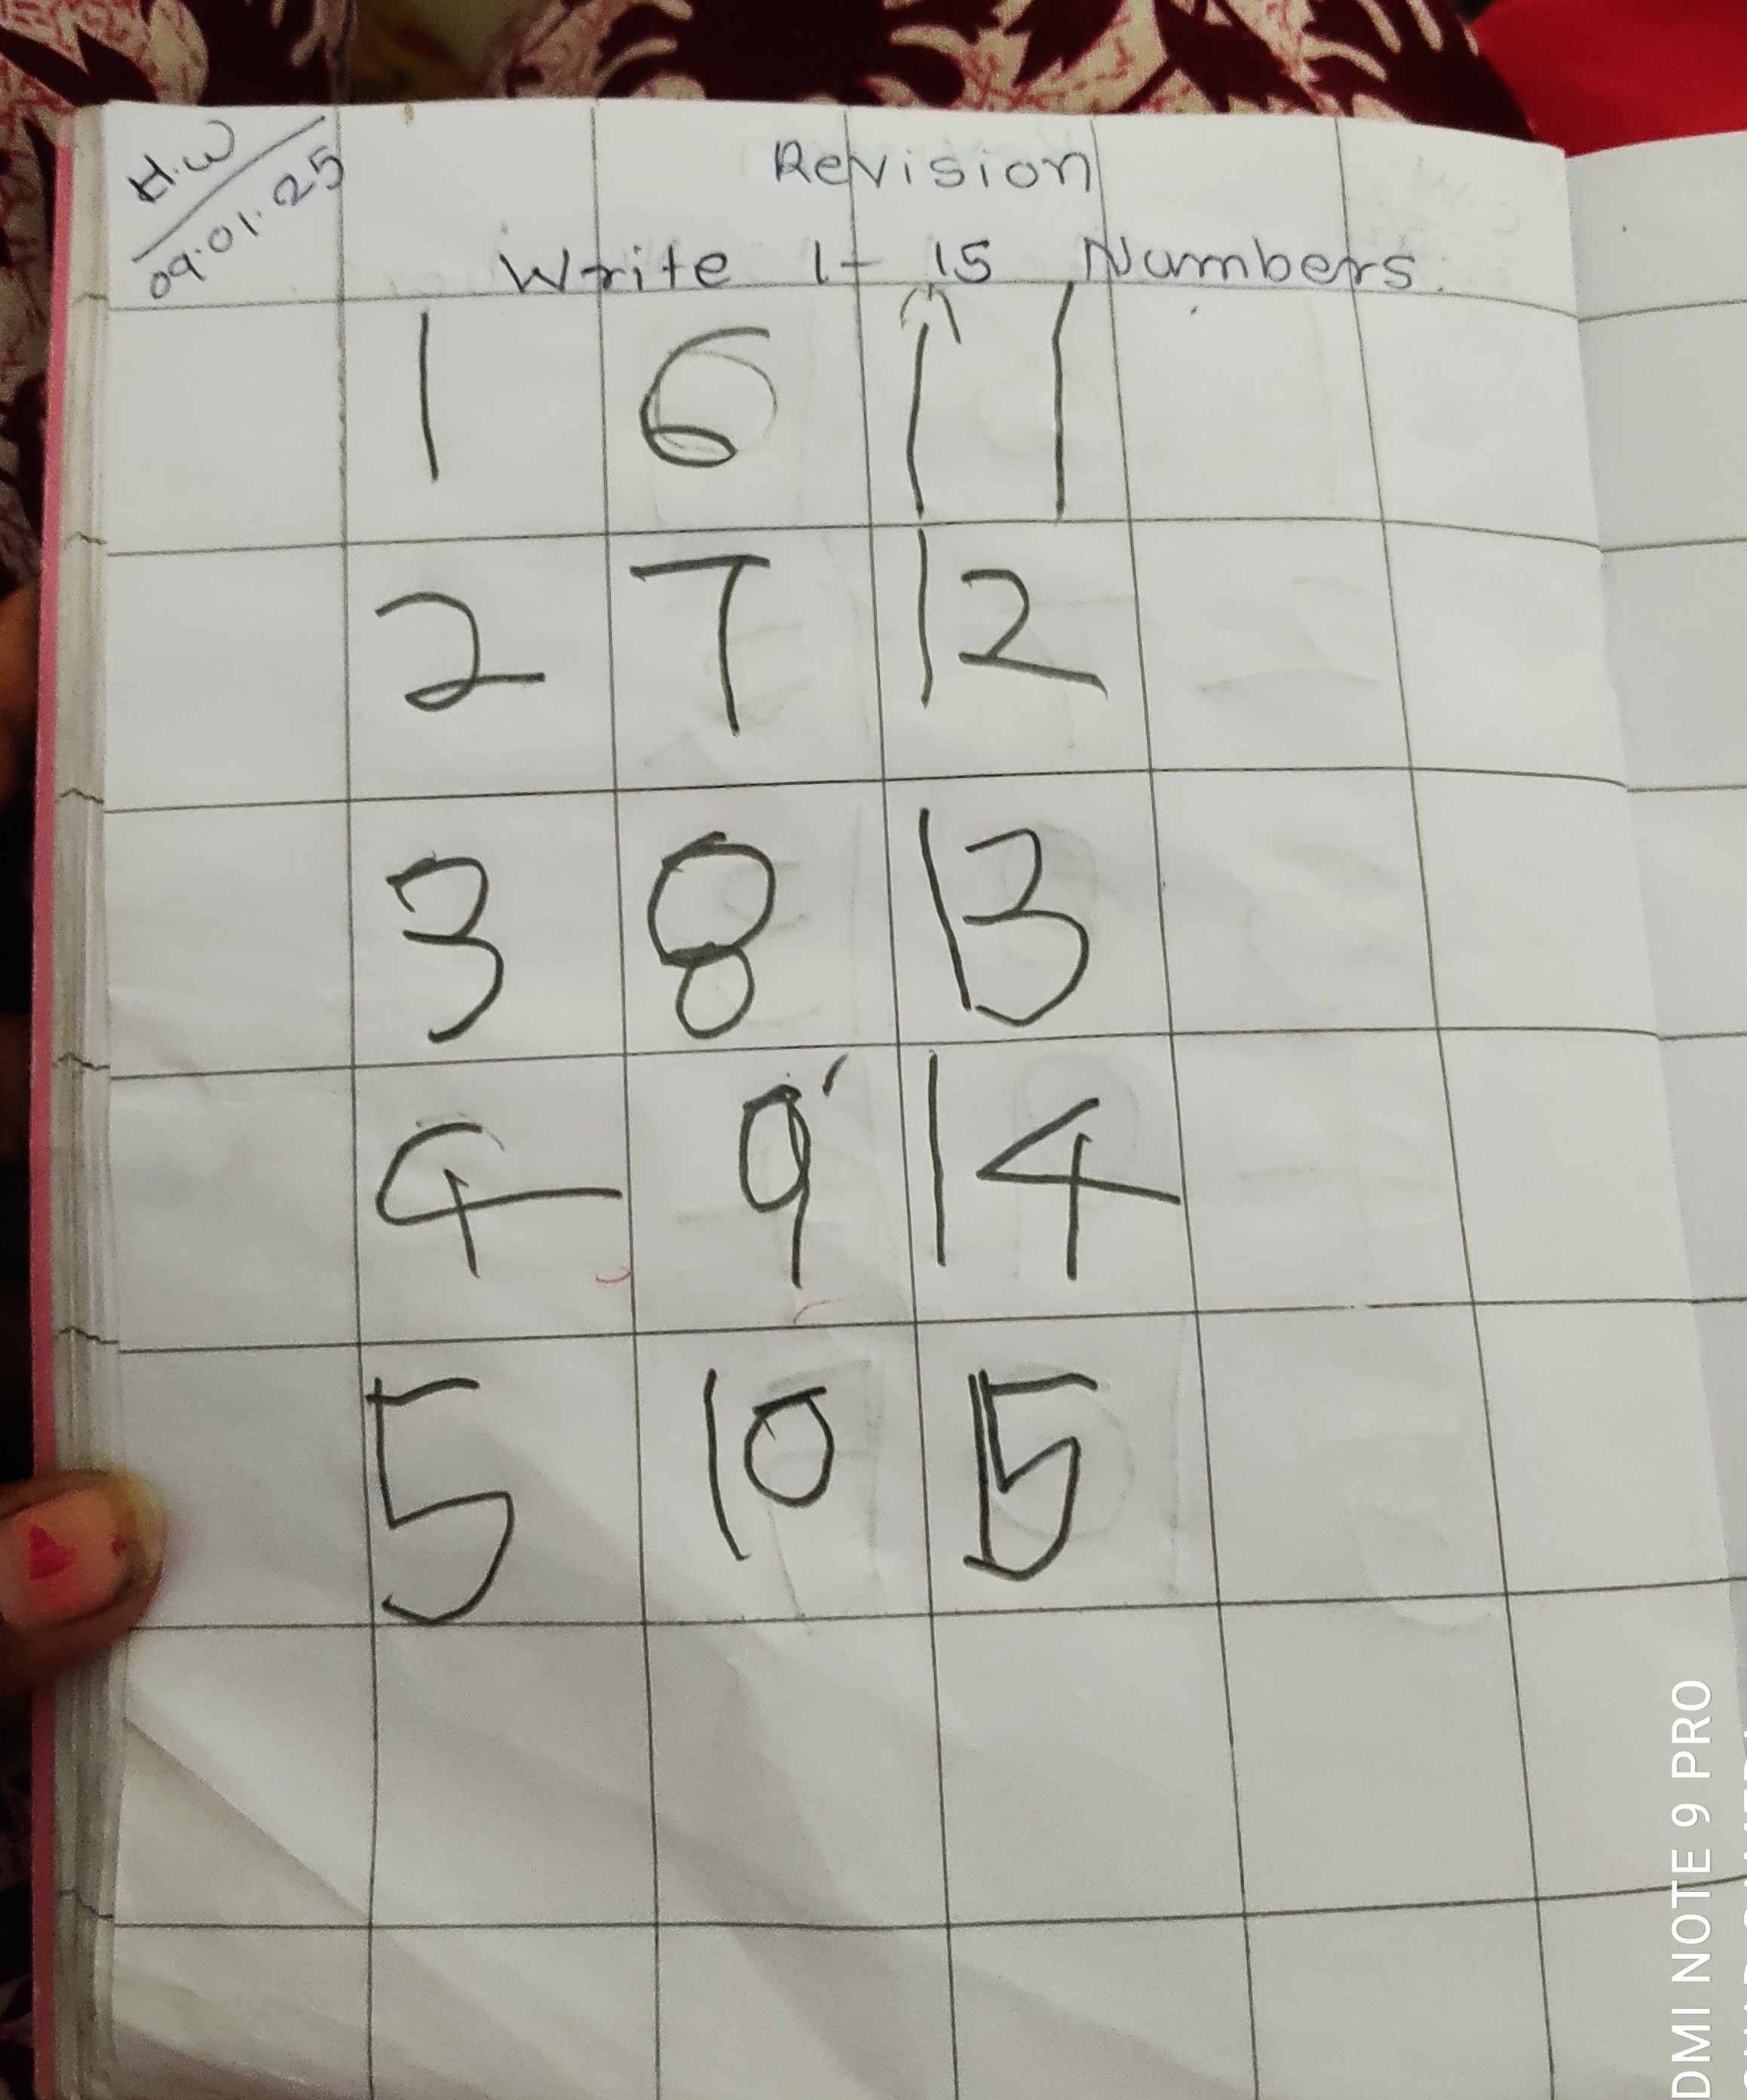 H.W
09.01.25
Revision
Write 1- 15 Numbers.
1 6 11
2 7 12
3 8 13
4 9 14
5 10 15
DMI NOTE 9 PRO